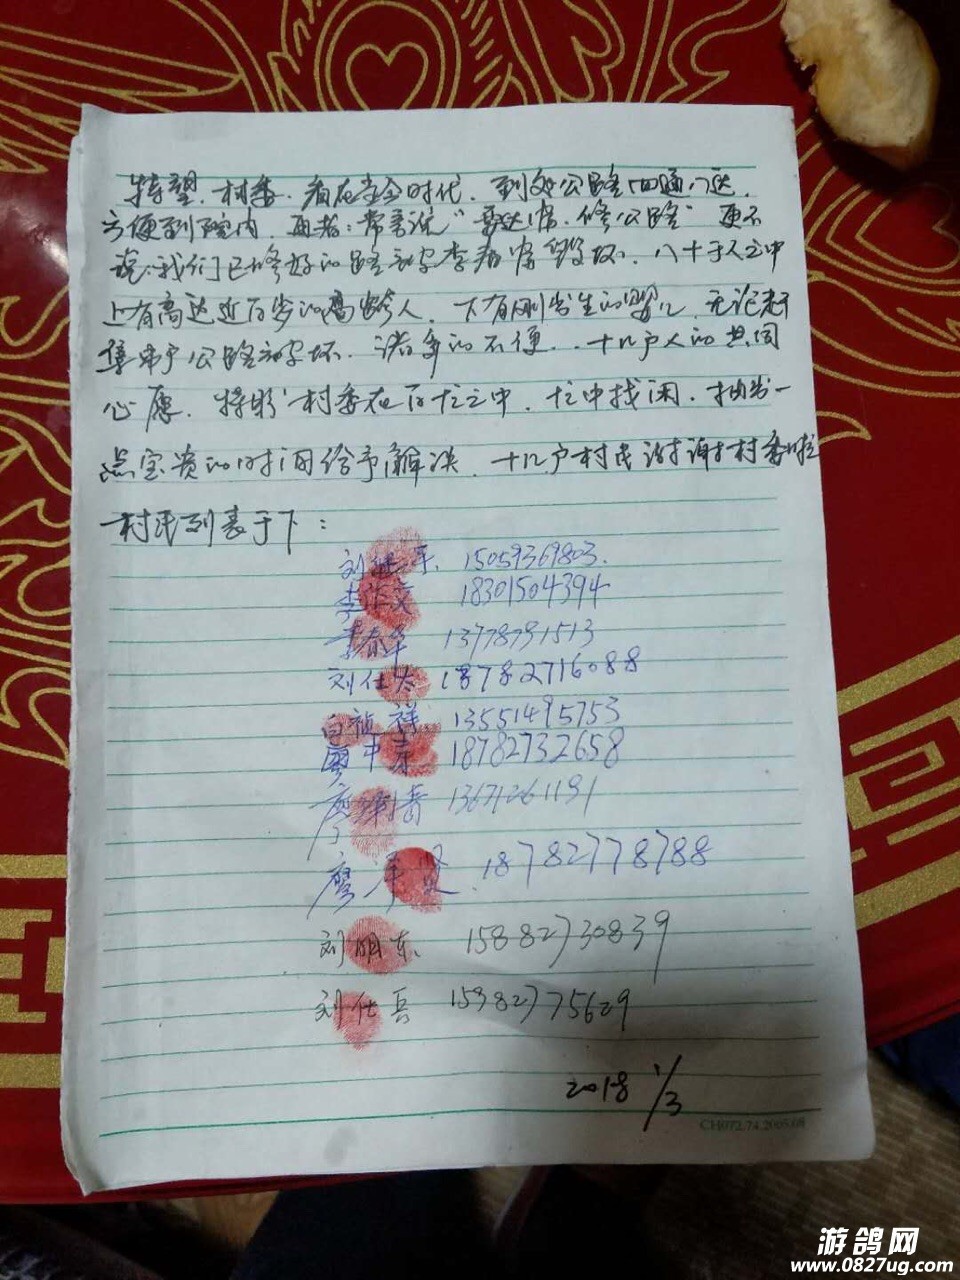 特望。村委。看在当今时代，到处公路四通八达，
方便到院内，再者：常言说“要达富，修公路”更不
说：我们已修好的路 毁坏，八十多人之中
上有高达近百岁的高龄人，下有刚出生的婴儿，无论
公路 坏，诸多的不便。十几户人的共同
心愿，特盼 村委在百忙之中，忙中找闲，抽出一
点宝贵的时间给予解决，十几户村民谢谢村委啦
村民列表于下：
刘 平 15059369803
李 18301504394
李春华 13778791513
刘仕 18782716088
白祯祥 13551495753
廖中 18782732658
廖 13671261191
廖 贤 18782778788
刘明东 15882730839
刘仕兵 15982775629
2018 1/3
CH072.74.2005.08
游鸽网
www.0827ug.com